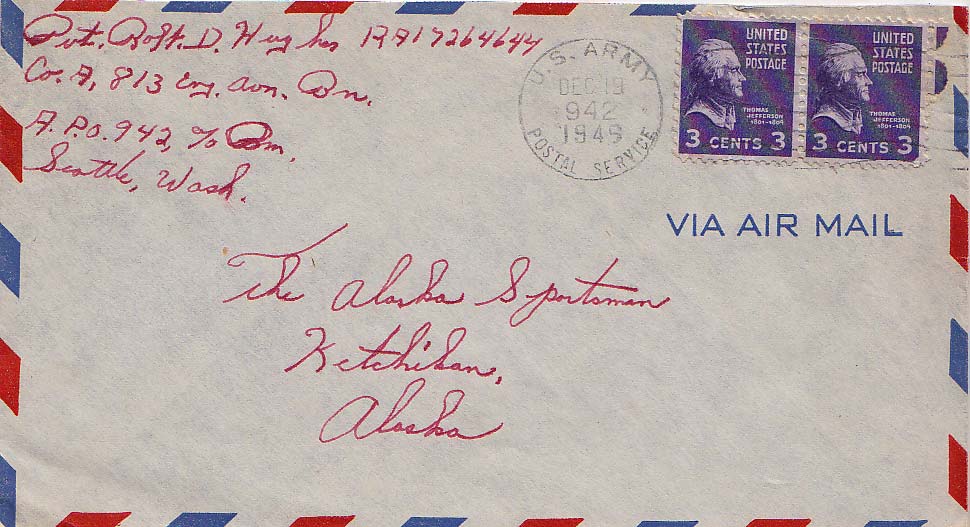 Pvt. Robt. D. Hughes RA17264644
Co. A, 813 Eng. Avn. Bn.
A.P.O. 942, % Pm,
Seattle, Wash.
U.S. ARMY
DEC 19
942
1946
POSTAL SERVICE
UNITED
STATES
POSTAGE
THOMAS
JEFFERSON
1801-1809
3 CENTS 3
UNITED
STATES
POSTAGE
THOMAS
JEFFERSON
1801-1809
3 CENTS 3
VIA AIR MAIL
The Alaska Sportsman
Ketchikan,
Alaska